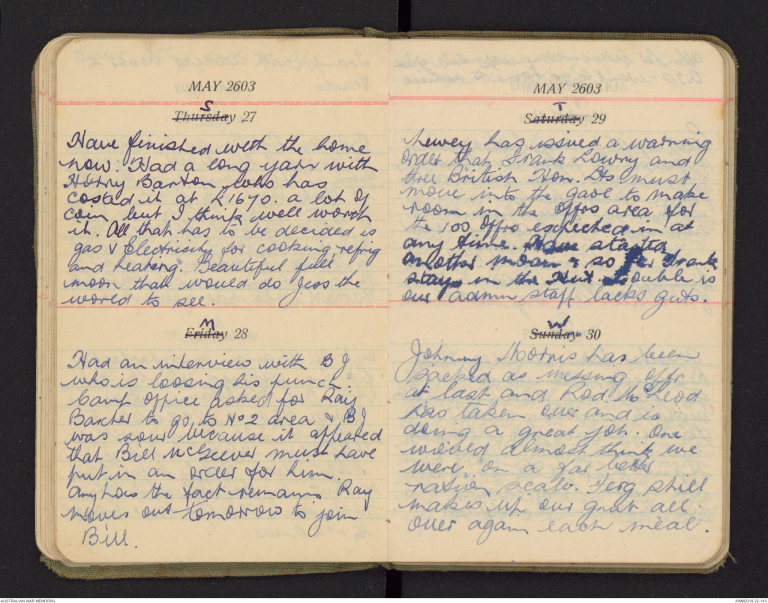 MAY 2603
S
Thursday 27
Have finished with the home
now. Had a long yarn with
Harry Barton who has
costed it at £1670. a lot of
coin but I think well worth
it. All that has to be decided is
gas v Electricity for cooking, refrig
and heating. Beautiful full
moon that would do Jess the
world to see.
M
Friday 28
Had an interview with B J
who is loosing his punch.
Camp Office asked for Ray
Barcher to go to No 2 area & BJ
was sour because it appeared
that Bill McGeever must have
put in an order for him.
anyhow the fact remains Ray
moves out tomorrow to join
Bill.
MAY 2603
T
Saturday 29
has issued a warning
order that Frank Lowry and
three British Hon. Lts must
move into the gaol to make
room in the offrs area for
the 100 offrs expected in at
any time. Have started
another moan & so far Frank
stays in the Hut. Trouble is
our admin staff lacks guts.
W
Sunday 30
Johnny Morris has been
sacked as messing offr
at last and Rod McLeod
has taken over and is
doing a great job. One
would almost think we
were on a far better
ration scale. Ferg still
makes up our grub all
over again each meal.
AUSTRALIAN WAR MEMORIAL